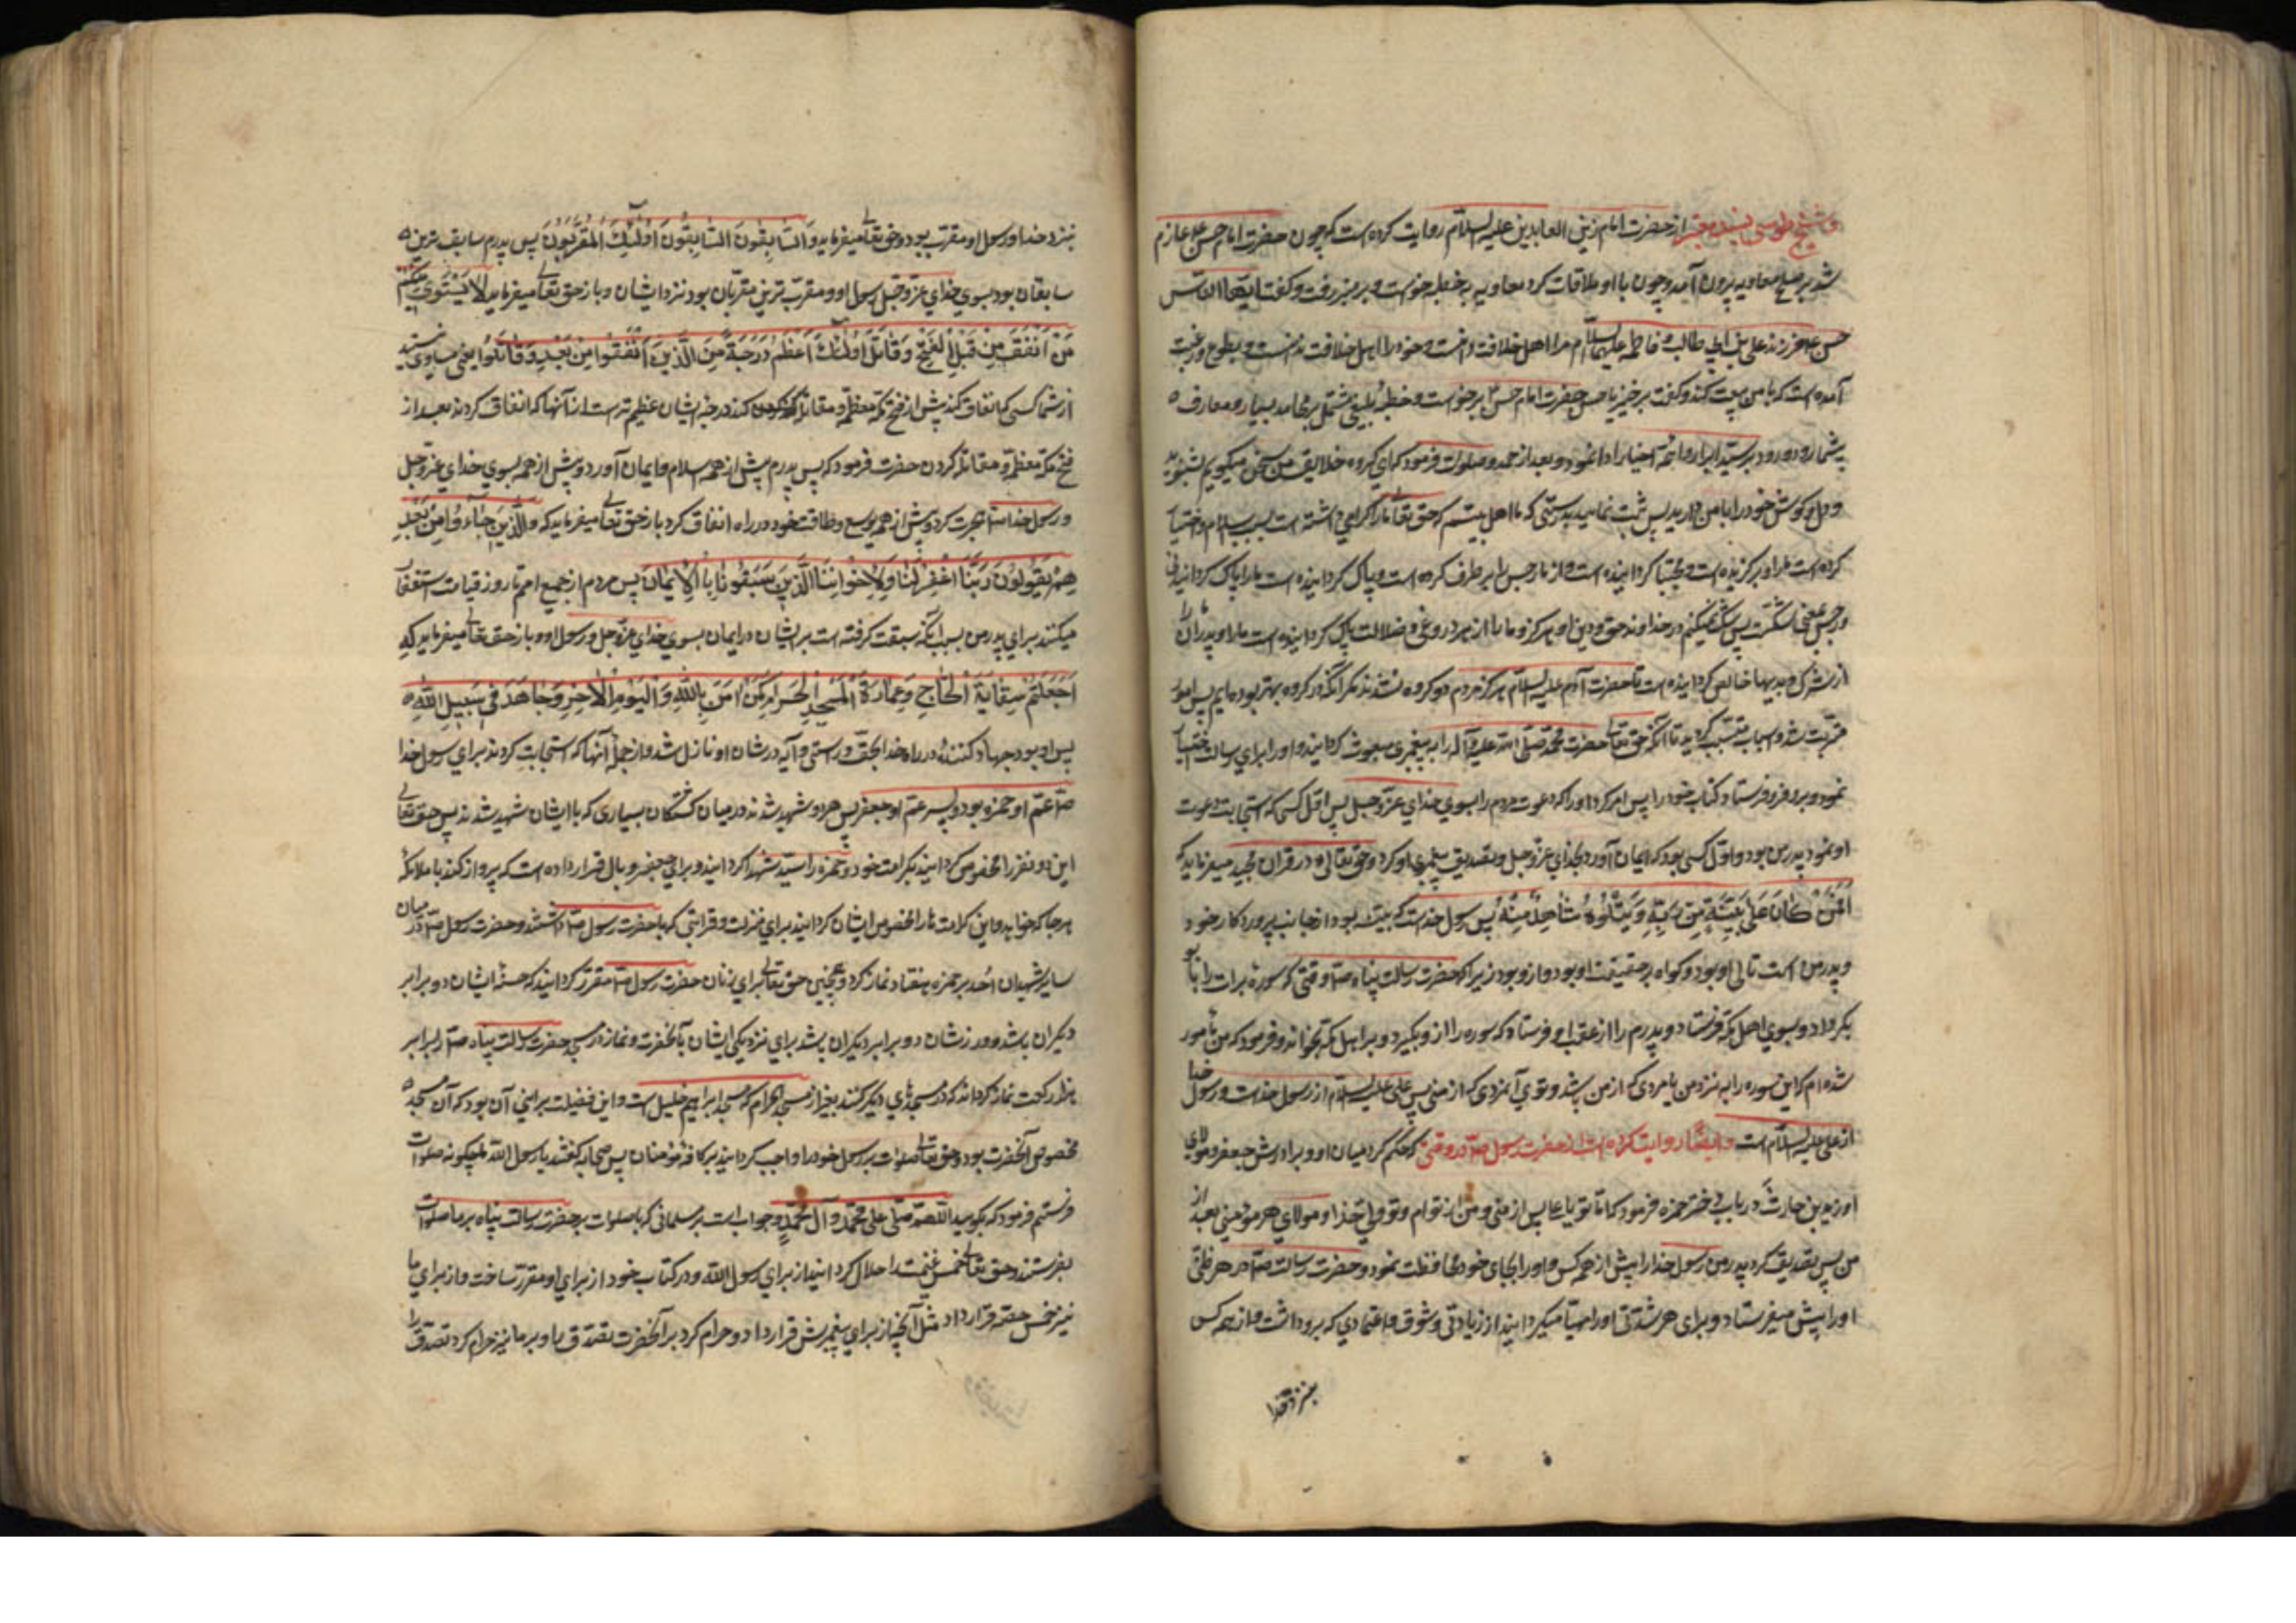 و شیخ طوسی بسند معتبر از حضرت امام زین العابدین علیه السلام روایت کرده است که چون حضرت امام حسن ع عازم
شد بر صلح معاویه بیرون آمد و چون با او ملاقات کرد معاویه به خطبه برخواست و بر منبر رفت و کفت ایها الناس
حسن ع فرزند علی بن ابی طالب و فاطمه علیهما السلام مرا اهل خلافت دانست و خود را اهل خلافت ندانست و بطوع و رغبت
آمده است که با من بیعت کند و کفت برخیز یا حسن حضرت امام حسن ع برخواست و خطبه بلیغی مشتمل بر محامد بسیار و معارف
بیشمار و درود بر سید ابرار و ائمه اخیار ادا نمود و بعد از حمد و صلوات فرمود که ای کروه خلایق من سخن میکویم بشنوید
و دل و کوش خود را با من دارید پس ثبت نمایید بدرستی که ما اهل بیتیم که حق تعالی ما را کرامی داشته است بسبب اسلام و اختیار
کرده است ما را و برکزیده است و مجتبا کردانیده است و از ما رجس را برطرف کرده است و پاک کردانیده است ما را پاک کردانیدنی
و رجس بمعنی شکست پس شک نمیکنیم در خداوند حق و دین او هرکز و ما را از هر دروغی و ضلالت پاک کردانیده است ما را و پدران ما را
از شرک و بدیها خالص کردانیده است تا حضرت آدم علیه السلام هرکز مردم دو کروه نشدند مکر آنکه در کروه بهتر بوده‌ایم پس امور
مترتب شد و اسباب مسبب کردید تا آنکه حق تعالی حضرت محمد صلی الله علیه و آله را به پیغمبری مبعوث کردانید و او را برای رسالت اختیار
نمود و برو فرو فرستاد کتاب خود را پس امر کرد او را که دعوت مردم را بسوی خدای عز و جل پس اول کسی که استجابت دعوت
او نمود پدر من بود و اول کسی بود که ایمان آورد بخدای عز و جل و تصدیق پیغمبری او کرد و حق تعالی در قران مجید میفرماید که
اَفَمَنْ کَانَ عَلیٰ بَیِّنَةٍ مِنْ رَبِّهِ وَیَتْلُوهُ شَاهِدٌ مِنْهُ پس رسول خداست که بینه بود از جانب پروردکار خود
و پدر من است تالی او بود و کواه بر حقیقت او بود و ازو بود زیرا که حضرت رسالت پناه ص وقتی که سوره برات را بابو
بکر داد و بسوی اهل مکه فرستاد و پدرم را از عقب او فرستاد که سوره را ازو بکیرد و بر اهل مکه بخواند و فرمود که من مامور
شده‌ام که این سوره را به نبرد من یا مردی که از من باشد و توی آنمردی که از منی پس علی علیه السلام از رسول خداست و رسول خدا
از علی علیه السلام است و ایضا روایت کرده است از حضرت رسول ص در وقتی که حکم کرد میان او و برادرش جعفر و مولای
او زید بن حارث در باب دختر حمزه فرمود که اما تو یا علی پس از منی و من از توام و تو ولی و مولای هر مومنی بعد از
من پس تصدیق کرد پدر من رسول خدا را پیش از همه کس و او را بجای خود محافظت نمود و حضرت رسالت ص در هر خلقی
او را پیش میفرستاد و برای هر شدتی او را مهیا میکردانید از زیادتی وثوق و اعتمادی که برو داشت و از همه کس
بنزد خدا
بنزد خدا و رسول او مقرب بود و حق تعالی میفرماید وَالسَّابِقُونَ السَّابِقُونَ اُولٰئِکَ الْمُقَرَّبُونَ پس پدرم سابق ترین
سابقان بود بسوی خدای عز و جل و رسول او و مقرب ترین مقربان بود نزد ایشان و باز حق تعالی میفرماید لا یَسْتَوی مِنْکُمْ
مَنْ اَنْفَقَ مِنْ قَبْلِ الْفَتْحِ وَقَاتَلَ اُولٰئِکَ اَعْظَمُ دَرَجَةً مِنَ الَّذِینَ اَنْفَقُوا مِنْ بَعْدِ وَقَاتَلُوا یعنی مساوی نیستند
از شما کسی که انفاق کند پیش از فتح مکه معظمه و مقاتله کند درجه ایشان عظیم تر است از آنها که انفاق کردند بعد از
فتح مکه معظمه و مقاتله کردن حضرت فرمود که پس پدرم پیش از همه اسلام و ایمان آورد و پیش از همه بسوی خدای عز و جل
و رسول خدا ص هجرت کرد و پیش از همه بوسع و طاقت خود در راه انفاق کرد باز حق تعالی میفرماید که وَالَّذِینَ جَاءُو مِنْ بَعْدِ
هِمْ یَقُولُونَ رَبَّنَا اغْفِرْ لَنَا وَلِاِخْوَانِنَا الَّذِینَ سَبَقُونَا بِالْاِیمَانِ پس مردم از جمیع امم تا روز قیامت استغفار
میکنند برای پدر من بسبب آنکه سبقت کرفته است بر ایشان در ایمان بسوی خدای عز و جل و رسول او و باز حق تعالی میفرماید که
اَجَعَلْتُمْ سِقَایَةَ الْحَاجِ وَعِمَارَةَ الْمَسْجِدِ الْحَرَامِ کَمَنْ اٰمَنَ بِاللّٰهِ وَالْیَوْمِ الْاٰخِرِ وَجَاهَدَ فِی سَبِیلِ اللّٰهِ
پس او بود جهاد کننده در راه خدا بحق و راستی و آیه در شان او نازل شد و از جمله آنها که استجابت کردند برای رسول خدا
ص عم او حمزه بود و پسر عم او جعفر پس هر دو شهید شدند در میان کشتکان بسیاری که با ایشان شهید شدند پس حق تعالی
این دو نفر را مخصوص کردانید بکرامت خود و حمزه را سید شهدا کردانید و برای جعفر دو بال قرار داده است که پرواز کند با ملائکه
هر جا که خواهد و این کرامت‌ها را مخصوص ایشان کردانید برای منزلت و قرابتی که با حضرت رسول ص داشتند و حضرت رسول ص در میان
سایر شهیدان احد بر حمزه هفتاد نماز کرد و همچنین حق تعالی برای زنان حضرت رسول ص مقرر کردانید که حسنه ایشان دو برابر
دیکران باشد و وزر ایشان دو برابر دیکران باشد برای نزدیکی ایشان بآنحضرت و نماز در مسجد حضرت رسالت پناه ص را برابر
هزار رکعت نماز کرداند که در مسجدهای دیکر کنند بغیر از مسجد الحرام که مسجد ابراهیم خلیل است و این فضیلت برای آن بود که آن مسجد
مخصوص آنحضرت بود و حق تعالی صلوات بر رسول خود را واجب کردانید بر کافه مومنان پس صحابه کفتند یا رسول الله ما چکونه صلوات
فرستیم فرمود که بکویید اللهم صل علی محمد و آل محمد و جواب است بر مسلمانی که با صلوات بر حضرت رسالت پناه بر ما صلوات
بفرستند حق تعالی خمس غنیمت را حلال کردانید از برای رسول الله و در کتاب خود از برای او مقرر ساخت و از برای ما
نیز خمس حصه قرار داد مثل آنچه از برای پیغمبرش قرار داد و حرام کرد بر آنحضرت تصدق را و بر ما نیز حرام کرد تصدق را